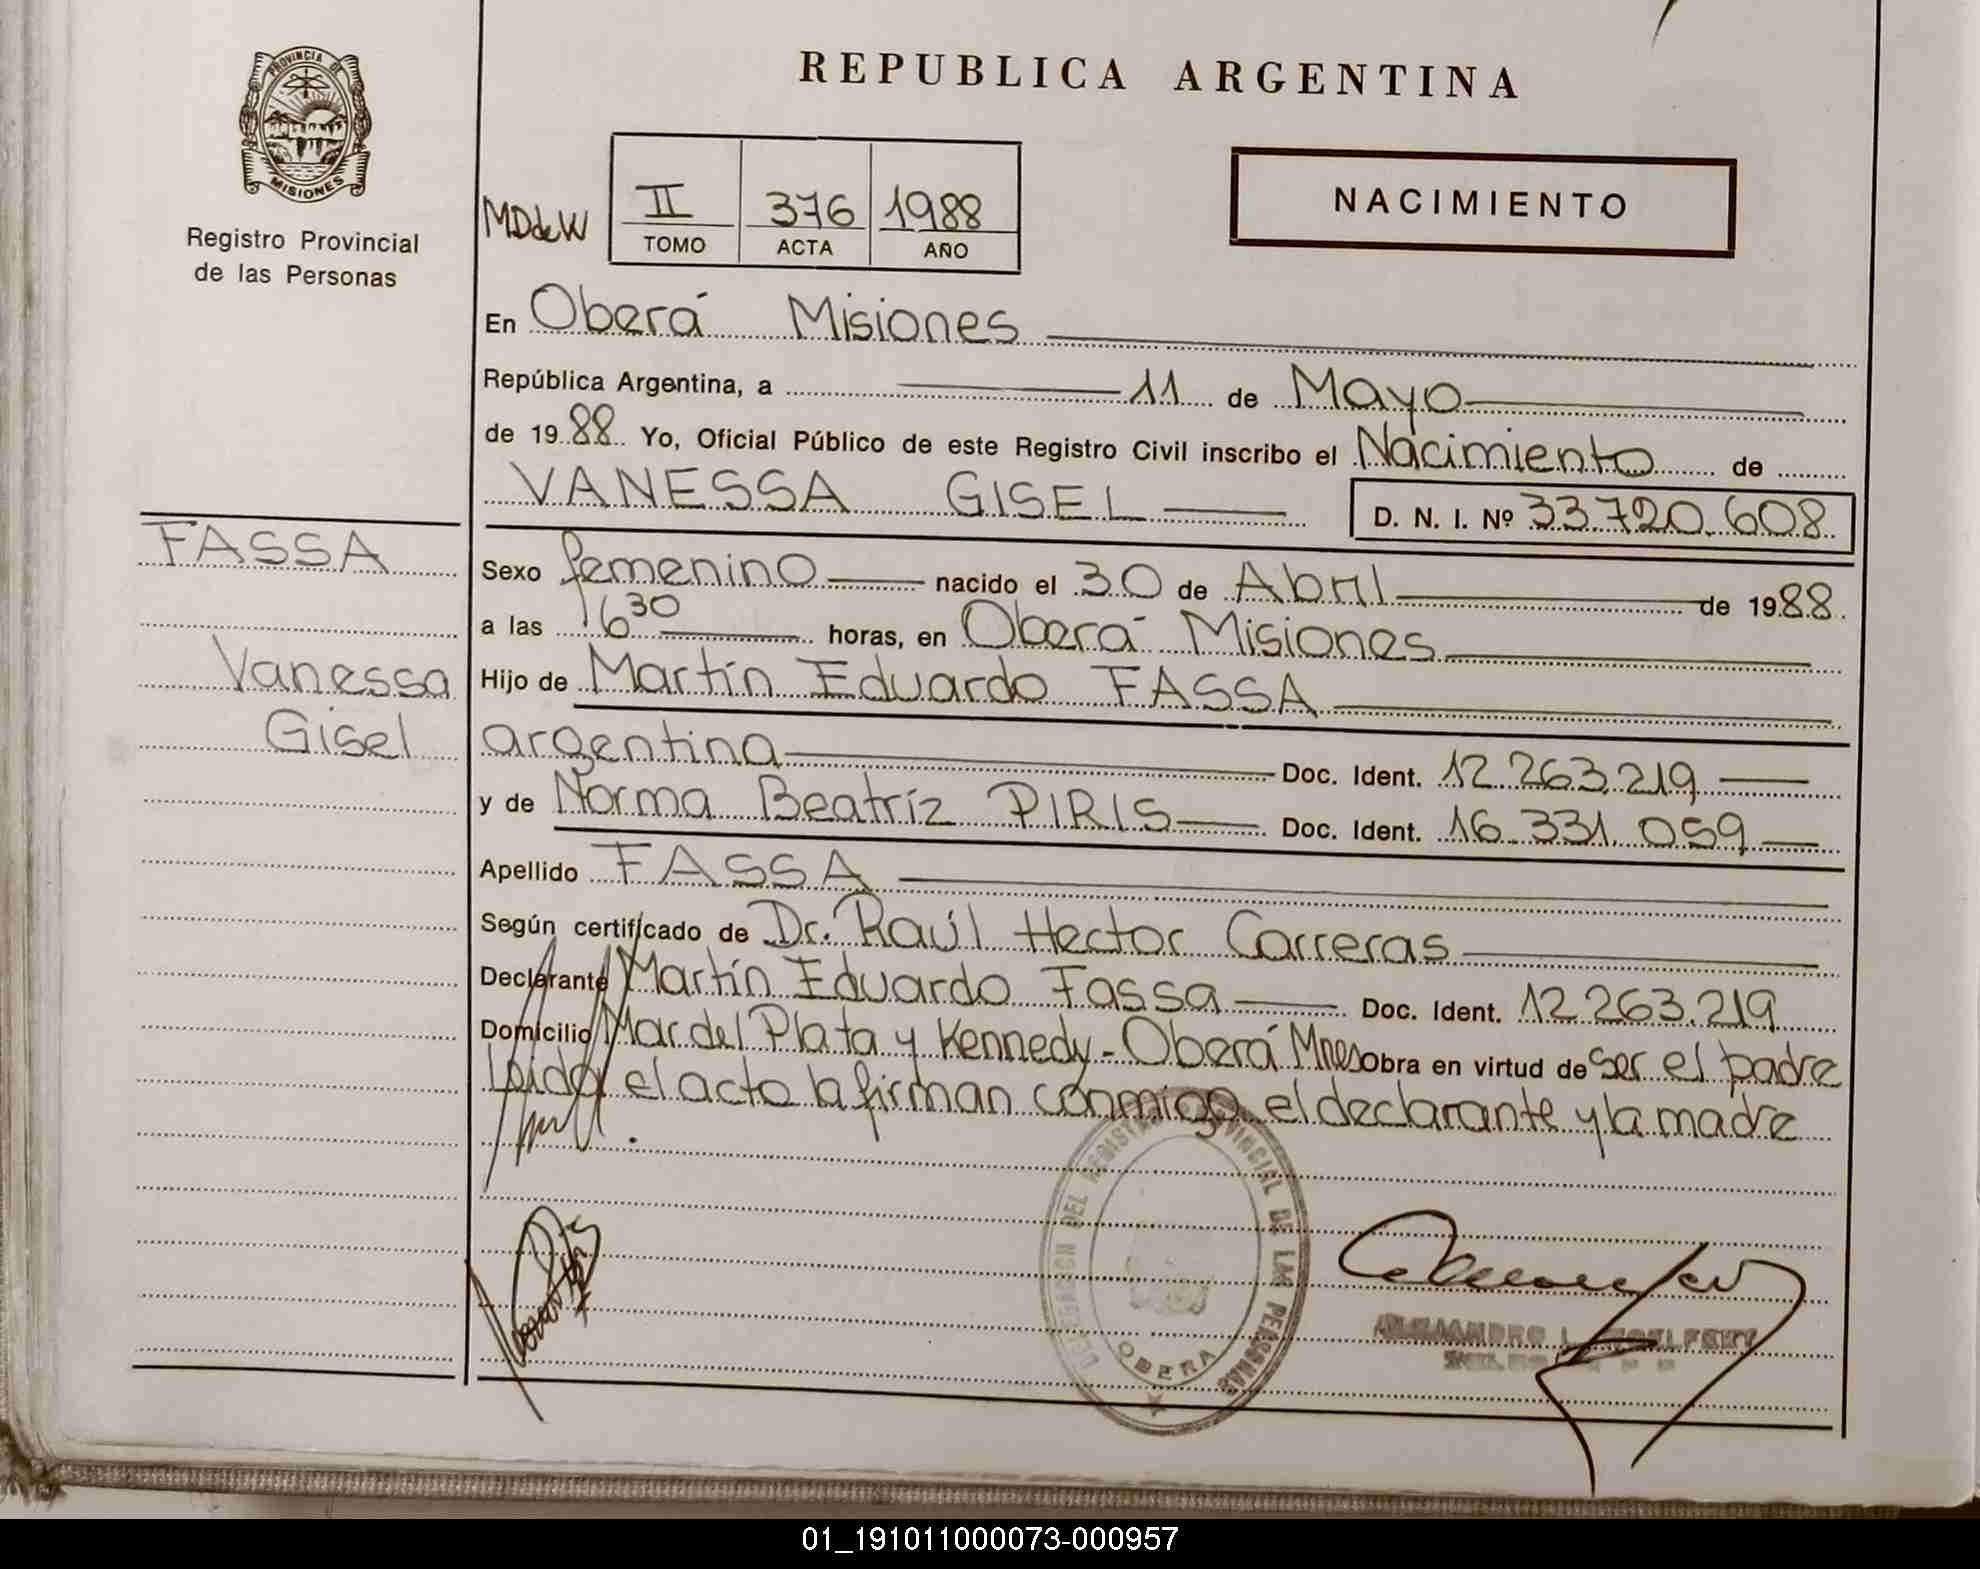 REPUBLICA ARGENTINA
PROVINCIA DE
MISIONES
Registro Provincial
de las Personas
MDdeW
II 376 1988
TOMO ACTA AÑO
NACIMIENTO
En Oberá Misiones
República Argentina, a 11 de Mayo
de 1988 Yo, Oficial Público de este Registro Civil inscribo el Nacimiento de
VANESSA GISEL D. N. I. Nº 33720.608
FASSA
Vanessa
Gisel
Sexo femenino nacido el 30 de Abril de 1988
a las 16 30 horas, en Oberá Misiones
Hijo de Martín Eduardo FASSA
argentina Doc. Ident. 12.263.219
y de Norma Beatríz PIRIS Doc. Ident. 16.331.059
Apellido FASSA
Según certificado de Dr. Raúl Hector Carreras
Declarante Martín Eduardo Fassa Doc. Ident. 12.263.219
Domicilio Mar del Plata y Kennedy - Oberá Mnes Obra en virtud de ser el padre
Leida el acto la firman conmigo el declarante y la madre
DELEGACION DEL REGISTRO PROVINCIAL DE LAS PERSONAS
OBERA
01_191011000073-000957